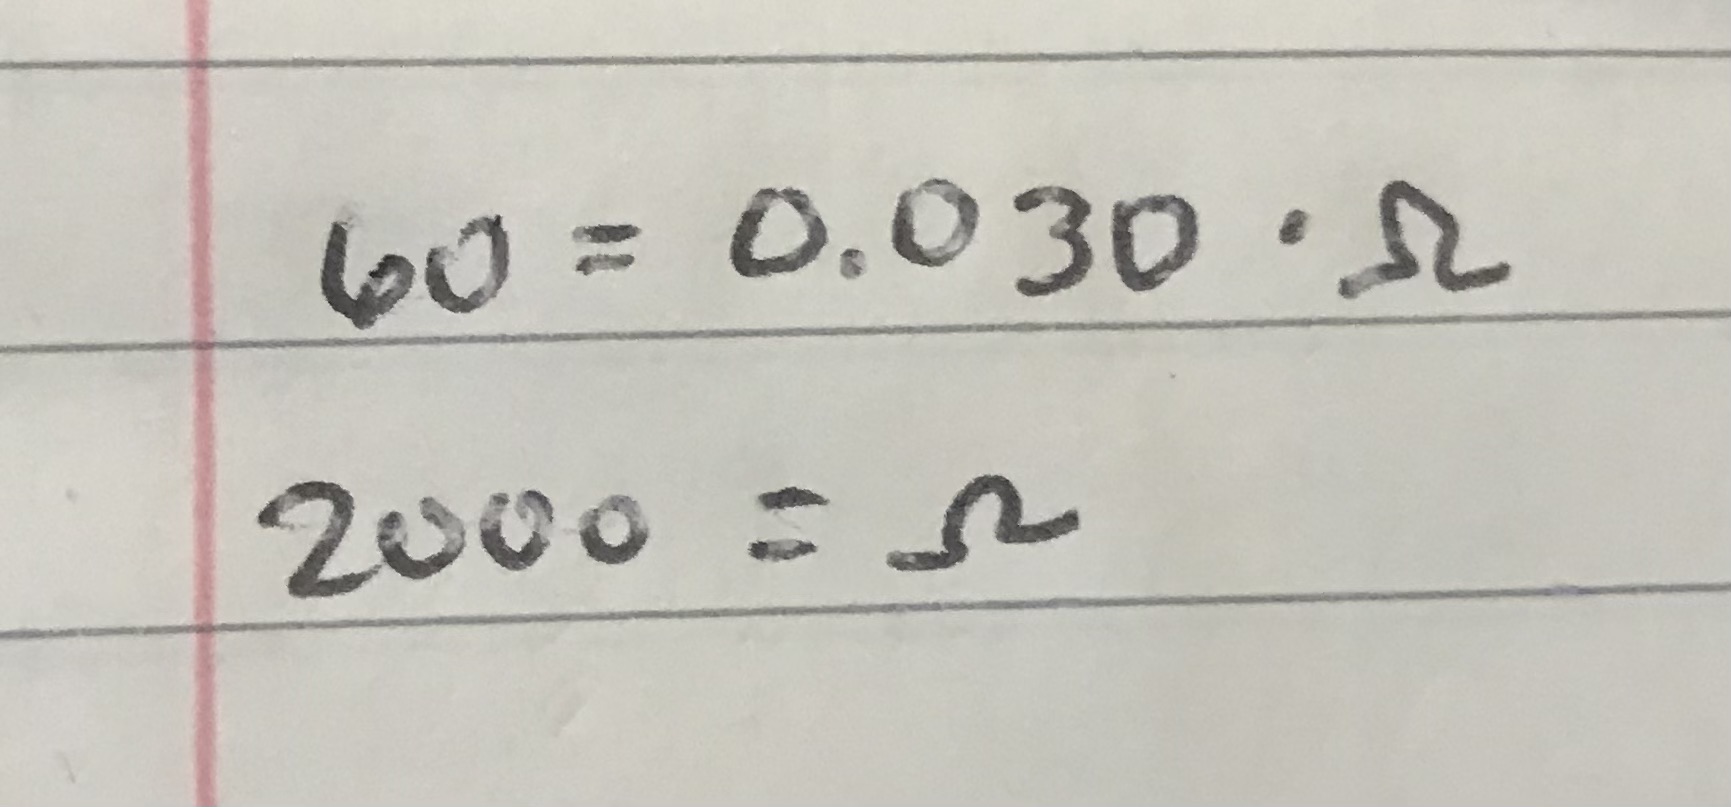 60 = 0.030 · Ω
2000 = Ω